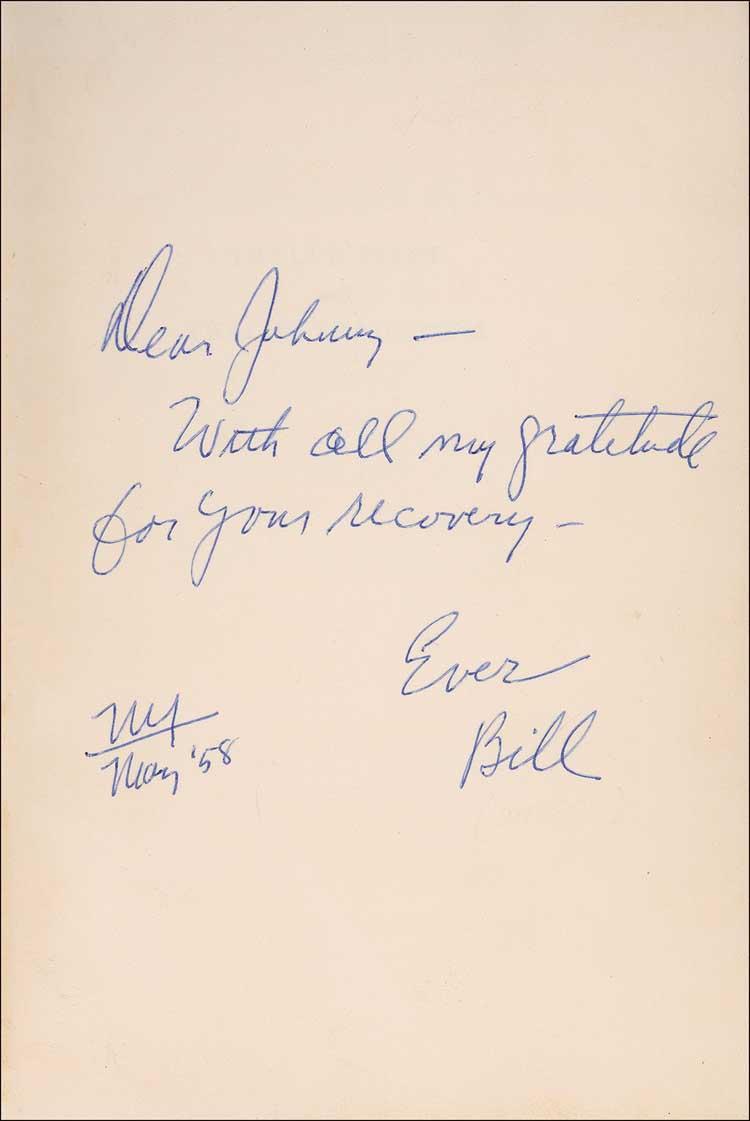 Dear Johnny —
With all my gratitude
for your recovery —
Ever
Bill
NY
May '58